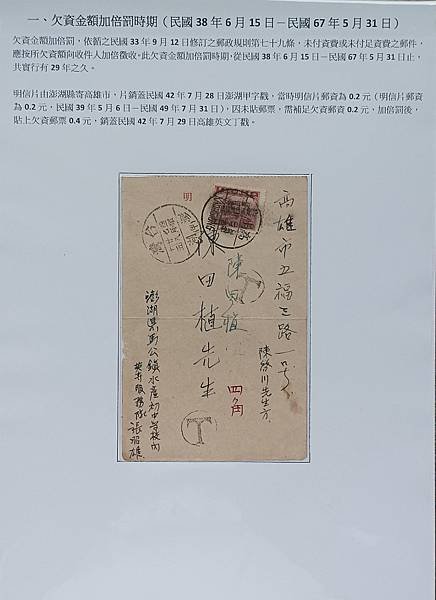 一、欠資金額加倍罰時期（民國 38 年 6 月 15 日－民國 67 年 5 月 31 日）
欠資金額加倍罰，依循之民國 33 年 9 月 12 日修訂之郵政規則第七十九條，未付資費或未付足資費之郵件，
應按所欠資額向收件人加倍徵收。此欠資金額加倍罰時期，從民國 38 年 6 月 15 日－民國 67 年 5 月 31 日止，
共實行有 29 年之久。
明信片由澎湖縣寄高雄市，片銷蓋民國 42 年 7 月 28 日澎湖甲字戳，當時明信片郵資為 0.2 元（明信片郵資
為 0.2 元，民國 39 年 5 月 6 日－民國 49 年 7 月 31 日），因未貼郵票，需補足欠資郵資 0.2 元，加倍罰後，
貼上欠資郵票 0.4 元，銷蓋民國 42 年 7 月 29 日高雄英文丁戳。
高雄市五福三路一
陳啓川先生方
陳田植先生
陳田植
四角
澎湖県馬公鎮水產初中學校內
張
明
台灣
T
T